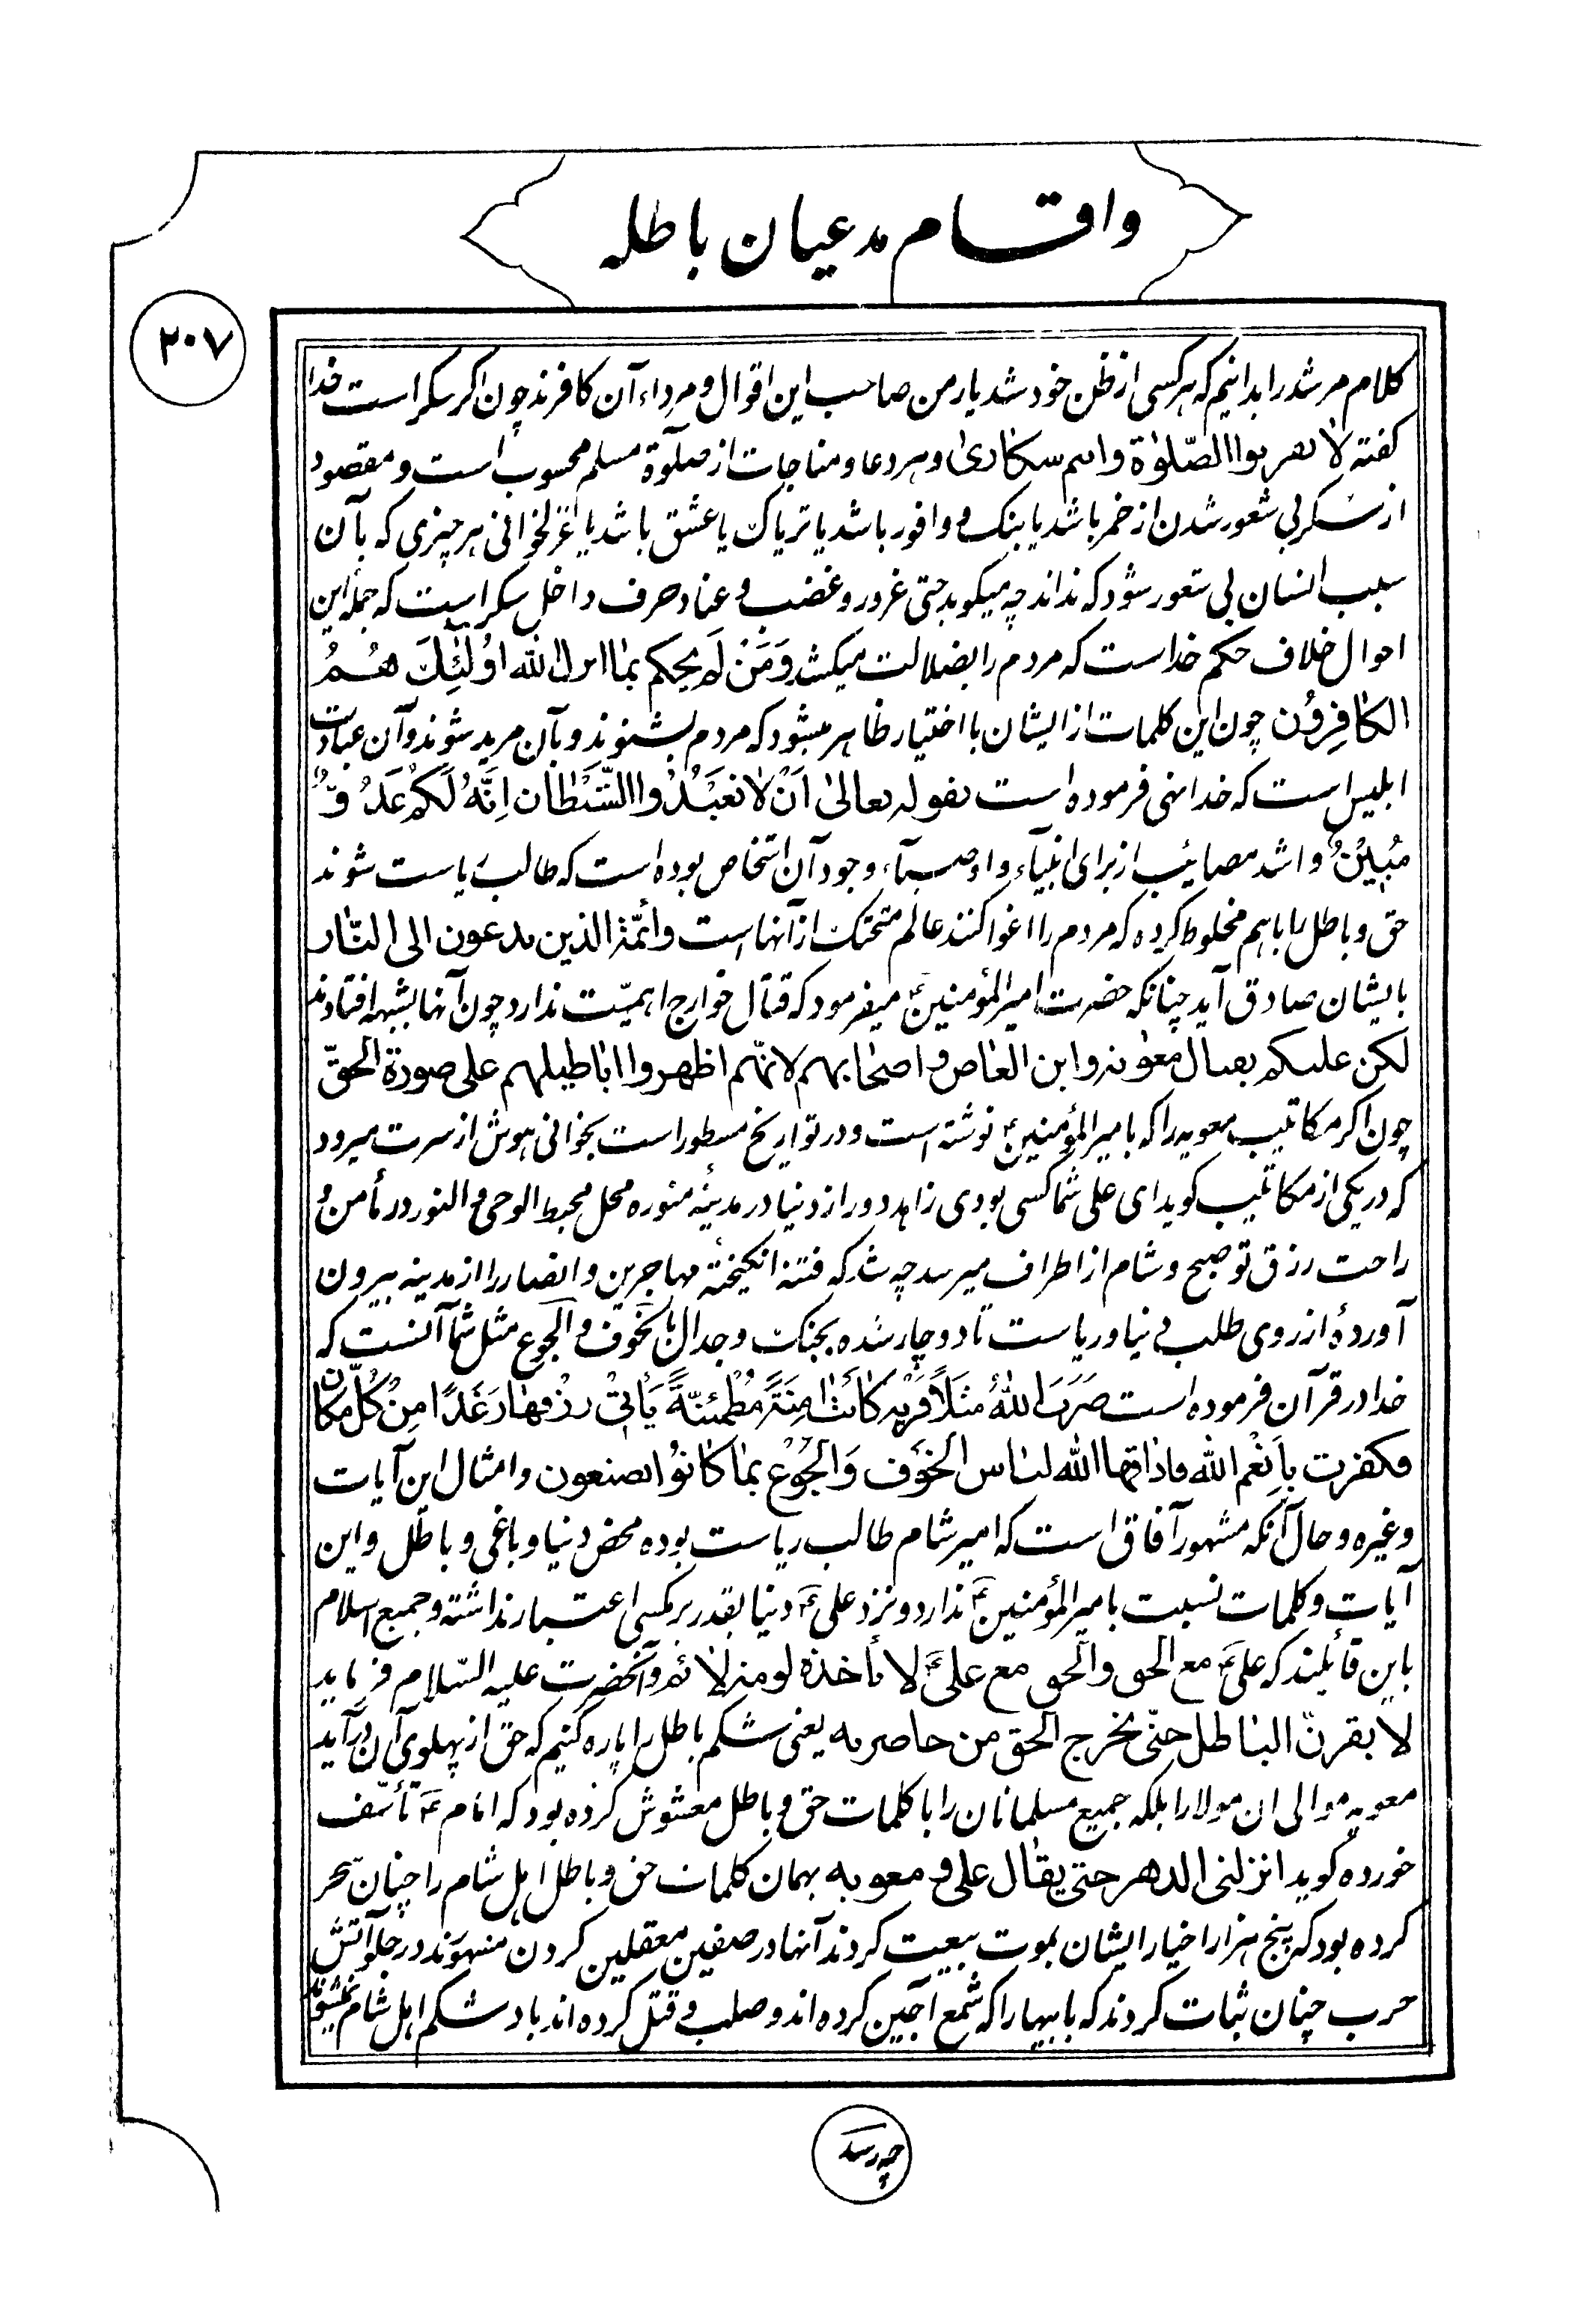 واقسام مدعیان باطله
۲۰۷
کلام مرشد را بدانیم که هر کسی از ظن خود شد یار من صاحب این اقوال و مرداء آن کافرند چون اکر سکر است خدا
کفته لا تقربوا الصّلوٰة وانتم سکاریٰ و هر دعا و مناجات از صلوٰة مسلم محسوب است و مقصود
از سکر بی شعور شدن از خمر باشد یا بنک و وافور باشد یا تریاک یا عشق باشد یا غزلخوانی هر چیزی که بآن
سبب انسان بی شعور شود که نداند چه میکوید حتی غرور و غضب و عناد صرف داخل سکر است که جمله این
احوال خلاف حکم خداست که مردم را بضلالت میکشد وَمَنْ لَمْ یحکم بمٰا انزل اللّه اوُلٰئِكَ هُمُ
الکٰافِروُن چون این کلمات از ایشان با اختیار ظاهر میشود که مردم بشنوند و بآن مرید شوند و آن عبادت
ابلیس است که خدا نهی فرموده است بقوله تعالیٰ اَنْ لاٰ تَعْبُدُوا الشَّیْطٰان اِنَّهُ لَکُمْ عَدُوٌّ
مُبیٖنٌ و اشد مصائب از برای انبیآء و اوصیآء وجود آن اشخاص بوده است که طالب ریاست شوند
حق و باطل را با هم مخلوط کرده که مردم را اغوا کنند عالم متحتک از آنها است وأئمّة الذین یدعون الی النّار
بایشان صادق آید چنانکه حضرت امیر المؤمنینؑ میفرمود که قتال خوارج اهمیّت ندارد چون آنها بشبهه افتادند
لکن علیکم بقتال معٰویه وابن العٰاص و اصحٰابهم لانّهم اظهروا ابٰاطیلهم علی صورة الحقّ
چون اکر مکاتیب معویه را که بامیر المؤمنینؑ نوشته است و در تواریخ مسطور است بخوانی هوش از سرت میرود
که در یکی از مکاتیب کوید ای علی شما کسی بودی زاهد دور از دنیا در مدینهٔ منوره محل محبط الوحی و النور در مأمن و
راحت رزق تو صبح و شام از اطراف میرسد چه شد که فتنه انکیختهٔ مهاجرین و انصار را از مدینه بیرون
آوردهٔ از روی طلب دنیا و ریاست تا دوچار شده بجنک و جدال باخوف و الجوع مثل شما آنست که
خدا در قرآن فرموده است ضَرَبَ اللّٰهُ مَثَلاً قَرْیَه کٰانَتْ اٰمِنَةً مُطْمَئِنَّةً یَأْتیٖ رِزْقهٰا رَغَدًا مِنْ کُلّ مَکٰان
فکفرت بِاَنْعُم اللّه فاذاقها اللّه لبٰاس الخَوْف وَالْجُوْع بمٰا کٰانوُا یصنعون و امثال این آیات
وغیره و حال آنکه مشهور آفاق است که امیر شام طالب ریاست بوده محض دنیا و باغی و باطل و این
آیات و کلمات نسبت بامیر المؤمنینؑ ندارد و نزد علیؑ دنیا بقدر پر مکسی اعتبار نداشته و جمیع اسلام
باین قائلند که علیؑ مع الحق والحق مع علیؑ لا تأخذه لومة لائم و آنحضرت علیه السّلام فرماید
لا بقرنّ البٰاطل حتّی یخرج الحق من خاصرته یعنی شکم باطل را پاره کنیم که حق از پهلوی آن درآید
معویه موالی ان مولا را بلکه جمیع مسلمانان را با کلمات حق و باطل مغشوش کرده بود که امامؑ تأسّف
خورده کوید انزلنی الدهر حتی یقٰال علی و معویه بهمان کلمات حق و باطل اهل شام را چنان سحر
کرده بود که پنج هزار اخیار ایشان بموت بیعت کردند آنها در صفین معقلین کردن منهوند در جلو آتش
حرب چنان ثبات کردند که بابیها را که شمع آجین کرده اند و صلب و قتل کرده اند باد شکم اهل شام
چه رسد